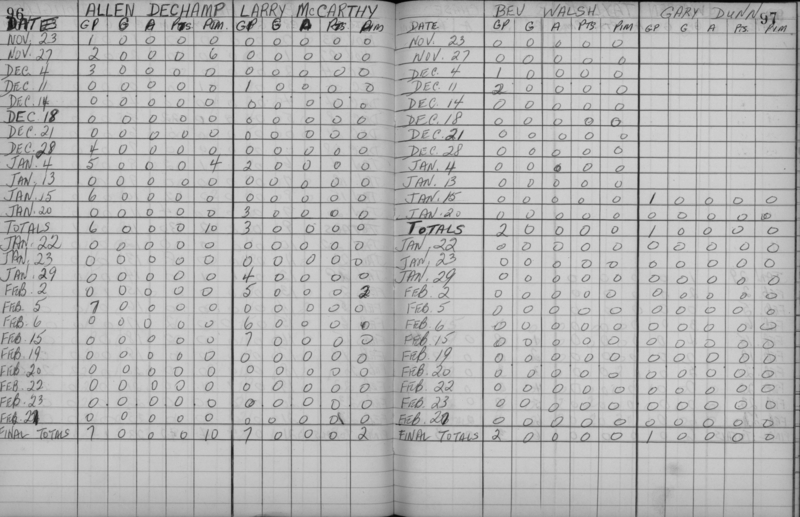 96 ALLEN DECHAMP LARRY McCARTHY
DATES GP G A Pts. Pim. GP G A Pts Pim
NOV, 23 1 0 0 0 0 0 0 0 0 0
NOV. 27 2 0 0 0 6 0 0 0 0 0
DEC. 4 3 0 0 0 0 0 0 0 0 0
DEC. 11 0 0 0 0 0 1 0 0 0 0
DEC. 14 0 0 0 0 0 0 0 0 0 0
DEC 18 0 0 0 0 0 0 0 0 0 0
DEC. 21 0 0 0 0 0 0 0 0 0 0
DEC. 28 4 0 0 0 0 0 0 0 0 0
JAN. 4 5 0 0 0 4 2 0 0 0 0
JAN, 13 0 0 0 0 0 0 0 0 0 0
JAN. 15 6 0 0 0 0 0 0 0 0 0
JAN. 20 0 0 0 0 0 3 0 0 0 0
TOTALS 6 0 0 0 10 3 0 0 0 0
JAN. 22 0 0 0 0 0 0 0 0 0 0
JAN, 23 0 0 0 0 0 0 0 0 0 0
JAN. 29 0 0 0 0 0 4 0 0 0 0
FEB. 2 0 0 0 0 0 5 0 0 0 2
FEB. 5 7 0 0 0 0 0 0 0 0 0
FEB. 6 0 0 0 0 0 6 0 0 0 0
FEB. 15 0 0 0 0 0 7 0 0 0 0
FEB. 19 0 0 0 0 0 0 0 0 0 0
FEB. 20 0 0 0 0 0 0 0 0 0 0
FEB. 22 0 0 0 0 0 0 0 0 0 0
FEB. 23 0 0 0 0 0 0 0 0 0 0
FEB 27 0 0 0 0 0 0 0 0 0 0
FINAL TOTALS 7 0 0 0 10 7 0 0 0 2
BEV WALSH. GARY DUNN 97
DATE GP G A Pts. Pim GP G A Pts. Pim
NOV. 23 0 0 0 0 0
NOV. 27 0 0 0 0 0
DEC. 4 1 0 0 0 0
DEC. 11 2 0 0 0 0
DEC. 14 0 0 0 0 0
DEC. 18 0 0 0 0 0
DEC. 21 0 0 0 0 0
DEC. 28 0 0 0 0 0
JAN. 4 0 0 0 0 0
JAN. 13 0 0 0 0 0
JAN. 15 0 0 0 0 0 1 0 0 0 0
JAN. 20 0 0 0 0 0 0 0 0 0 0
TOTALS 2 0 0 0 0 1 0 0 0 0
JAN, 22 0 0 0 0 0 0 0 0 0 0
JAN, 23 0 0 0 0 0 0 0 0 0 0
JAN. 29 0 0 0 0 0 0 0 0 0 0
FEB. 2 0 0 0 0 0 0 0 0 0 0
FEB. 5 0 0 0 0 0 0 0 0 0 0
FEB. 6 0 0 0 0 0 0 0 0 0 0
FEB. 15 0 0 0 0 0 0 0 0 0 0
FEB. 19 0 0 0 0 0 0 0 0 0 0
FEB. 20 0 0 0 0 0 0 0 0 0 0
FEB. 22 0 0 0 0 0 0 0 0 0 0
FEB. 23 0 0 0 0 0 0 0 0 0 0
FEB. 27 0 0 0 0 0 0 0 0 0 0
FINAL TOTALS 2 0 0 0 0 1 0 0 0 0